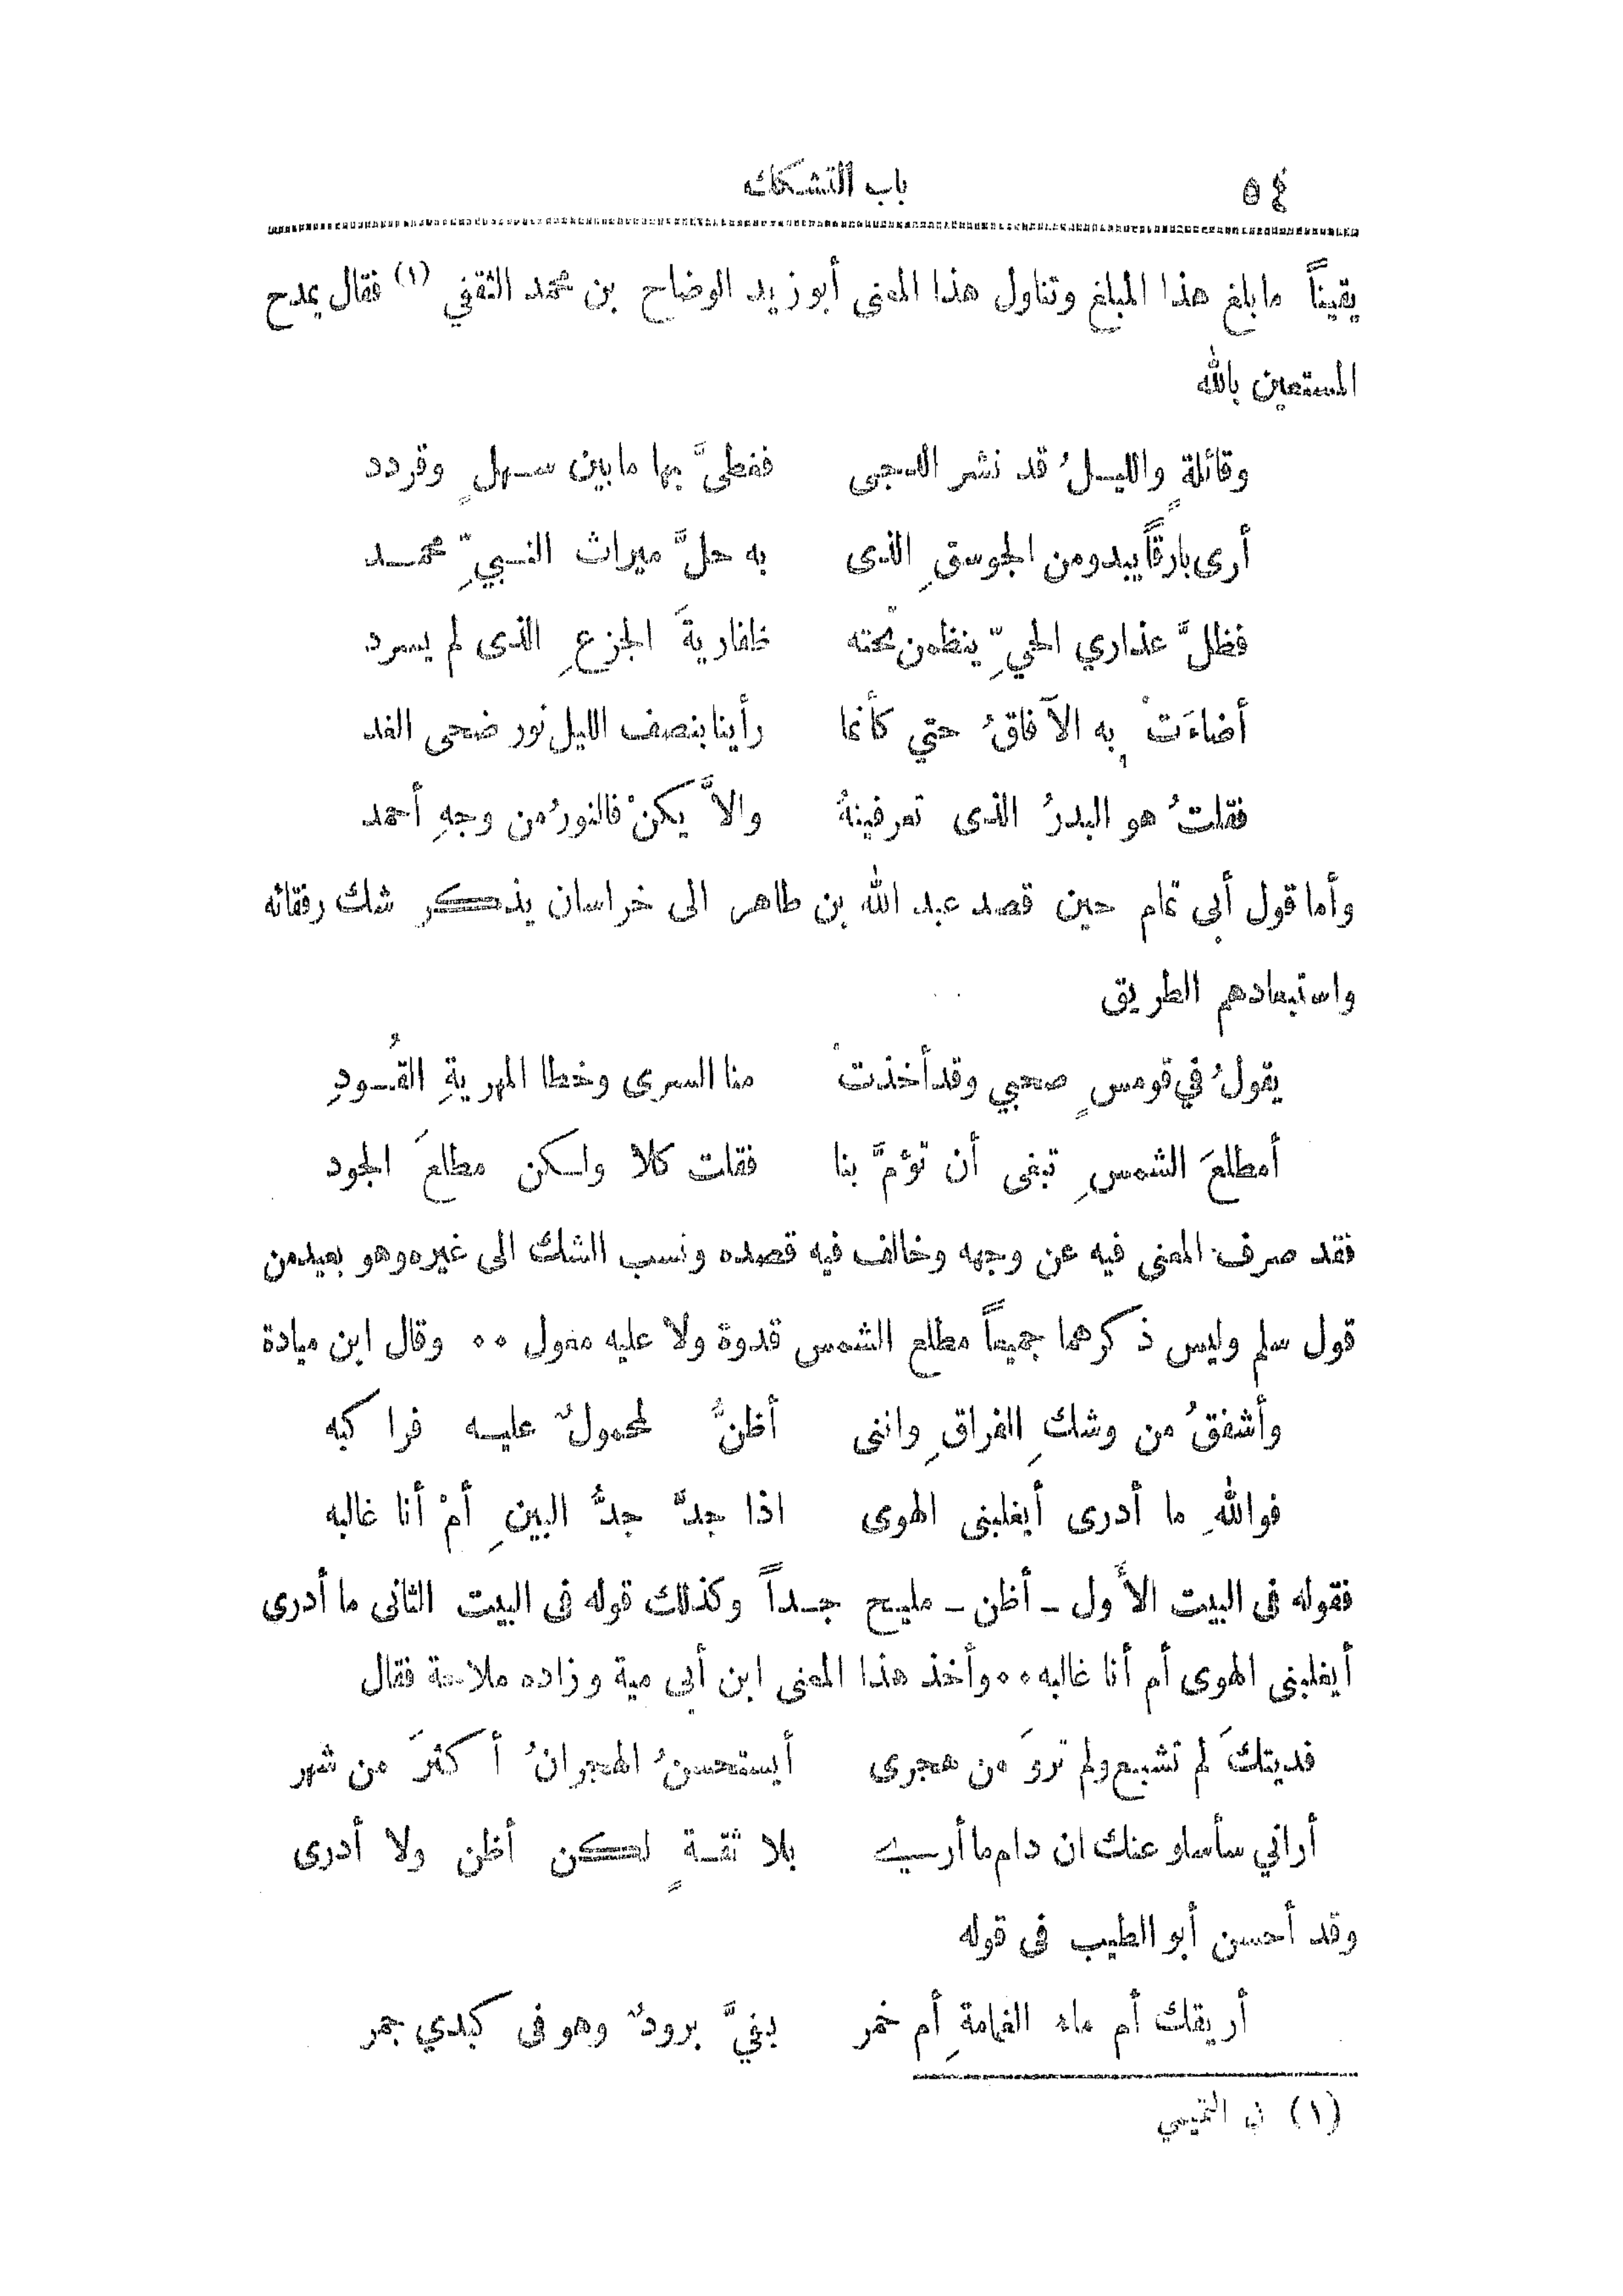 ٥٤ باب التشكك
يقيناً ما بلغ هذا المبلغ وتناول هذا المعنى أبو زيد الوضاح بن محمد الثقفي (١) فقال يمدح
المستعين بالله
وقائلةٍ والليــلُ قد نشر الدجى فغطىَّ بها ما بين ســهلٍ وقردد
أرى بارقاً يبدو من الجوسقِ الذى به حلَّ ميراث النــبيِّ محمــد
فظلَّ عذاري الحيِّ ينظمن تحته ظفاريةَ الجزعِ الذى لم يسرد
أضاءَتْ به الآفاقُ حتي كأنما رأينا بنصف الليل نور ضحى الغد
فقلتُ هو البدرُ الذى تعرفينهُ والاَّ يكنْ فالنورُ من وجهِ أحمد
وأما قول أبي تمام حين قصد عبد الله بن طاهر الى خراسان يذكر شك رفقائه
واستبعادهم الطريق
يقولُ في قومسٍ صحبي وقد أخذتْ منا السرى وخطا المهريةِ القُــودِ
أمطلعَ الشمسِ تبغى أن تؤمَّ بنا فقلت كلا ولكن مطلعَ الجود
فقد صرف المعنى فيه عن وجهه وخالف فيه قصده ونسب الشك الى غيره وهو بعيد من
قول سلم وليس ذكرهما جميعاً مطلع الشمس قدوة ولا عليه معول ٠٠ وقال ابن ميادة
وأشفقُ من وشكِ الفراقِ وانني أظنُّ لمحمولٌ عليــه فراكبه
فواللهِ ما أدرى أيغلبنى الهوى اذا جدَّ جدُّ البينِ أمْ أنا غالبه
فقوله فى البيت الأول ـ أظن ـ مليــح جــداً وكذلك قوله فى البيت الثانى ما أدرى
أيغلبنى الهوى أم أنا غالبه ٠٠ وأخذ هذا المعنى ابن أبي مية وزاده ملاحة فقال
فديتكَ لم تشبع ولم تروَ من هجرى أيستحسنُ الهجرانُ أكثرَ من شهر
أراني سأسلو عنك ان دام ما أرى بلا ثقــةٍ لكن أظن ولا أدرى
وقد أحسن أبو الطيب فى قوله
أريقك أم ماء الغمامةِ أم خمر بفيَّ برودٌ وهو فى كبدي جمر
(١) ن التميمي